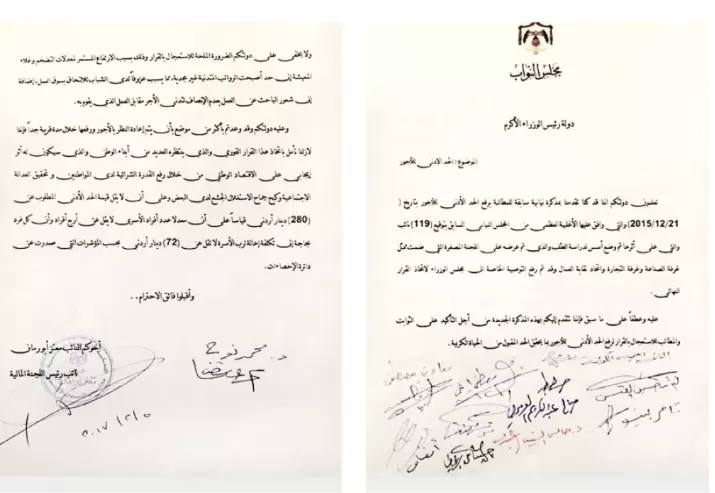 مجلس النواب
دولة رئيس الوزراء الأكرم
الموضوع: الحد الادنى للأجور
تعلمون دولتكم اننا قد كنا تقدمنا بمذكرة نيابية سابقة للمطالبة برفع الحد الأدنى للأجور بتاريخ (
2015/12/21) والتي وافق عليها الأغلبية العظمى من المجلس النيابي السابق بتوقيع (119) نائب
والتي على أثرها تم وضع أسس لدراسة الطلب والذي تم عرضه على اللجنة المصغرة التي ضمت ممثل
غرفة الصناعة وغرفة التجارة واتحاد نقابة العمال وقد تم رفع التوصية الخاصة الى مجلس الوزراء لاتخاذ القرار
النهائي.
عليه وعطفاً على ما سبق فإننا نتقدم إليكم بهذه المذكرة الجديدة من أجل التأكيد على الثوابت
والمطالب للاستعجال بالقرار لرفع الحد الأدنى للأجور بما يحقق الحد المقبول من الحياة الكريمة.
ولا يخفى على دولتكم الضرورة الملحة للاستعجال بالقرار وذلك بسبب الارتفاع المستمر لمعدلات التضخم وغلاء
المعيشة إلى حد أصبحت الرواتب المتدنية غير مجدية، مما يسبب عزوفاً لدى الشباب للالتحاق بسوق العمل، إضافة
إلى شعور الباحث عن العمل بعدم الإنصاف لتدني الأجر مقابل العمل الذي يقوم به.
وعليه دولتكم وقد وعدتم بأكثر من موضع بأن يتم إعادة النظر بالأجور ورفعها خلال مدة قريبة جداً فإننا
لازلنا نأمل باتخاذ هذا القرار الفوري والذي ينتظره العديد من أبناء الوطن والذي سيكون له أثر
إيجابي على الاقتصاد الوطني من خلال رفع القدرة الشرائية لدى المواطنين و تحقيق العدالة
الاجتماعية وكبح جماح الاستغلال الجشع لدى البعض وعلى أن لا يقل قيمة الحد الأدنى المطلوب عن
(280) دينار أردني قياساً على أن معدل عدد أفراد الأسرة لا يقل عن أربع أفراد وأن كل فرد
بحاجة إلى تكلفة إعالة لرب الأسرة لا تقل عن (72) دينار أردني بحسب المؤشرات التي صدرت عن
دائرة الإحصاءات.
وأقبلوا فائق الاحترام..
أخوكم النائب معتز أبو رمان
نائب رئيس اللجنة المالية